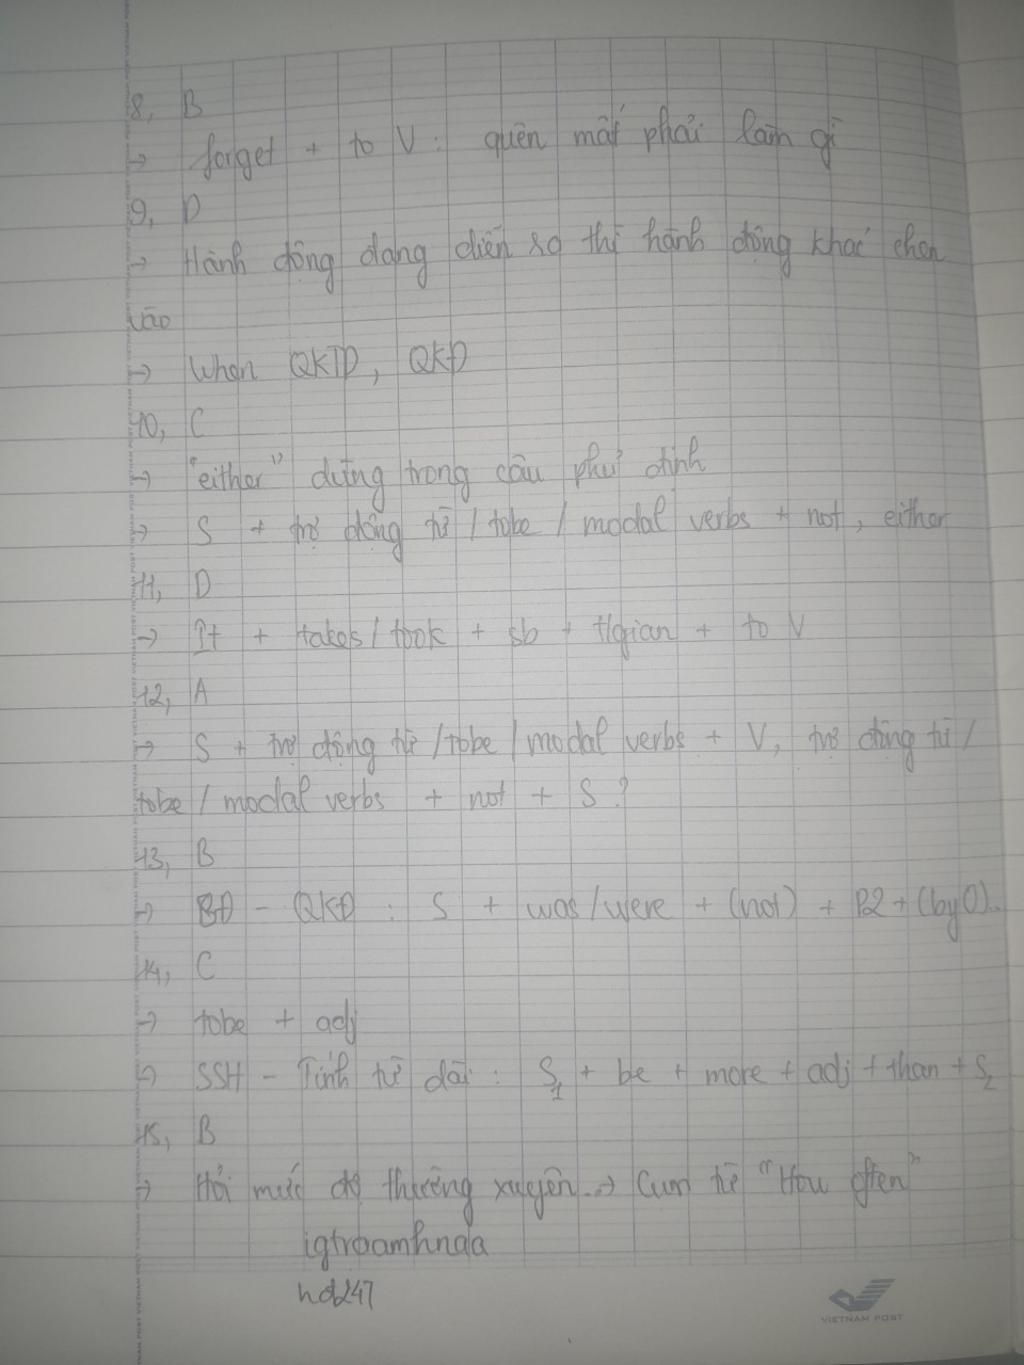 8, B
→ forget + to V : quên mất phải làm gì
9, D
→ Hành động đang diễn ra thì hành động khác chen
vào
→ When QKTD, QKĐ
10, C
→ "either" dùng trong câu phủ định
→ S + trợ động từ / tobe / modal verbs + not, either
11, D
→ It + takes / took + sb + tgian + to V
12, A
→ S + trợ động từ / tobe / modal verbs + V, trợ động từ /
tobe / modal verbs + not + S ?
13, B
→ BĐ - QKĐ : S + was / were + (not) + P2 + (by O).
14, C
→ tobe + adj
→ SSH - Tính từ dài : S1 + be + more + adj + than + S2
15, B
→ Hỏi mức độ thường xuyên → Cụm từ "How often"
igtroamhnaa
hd247
VIETNAM POST